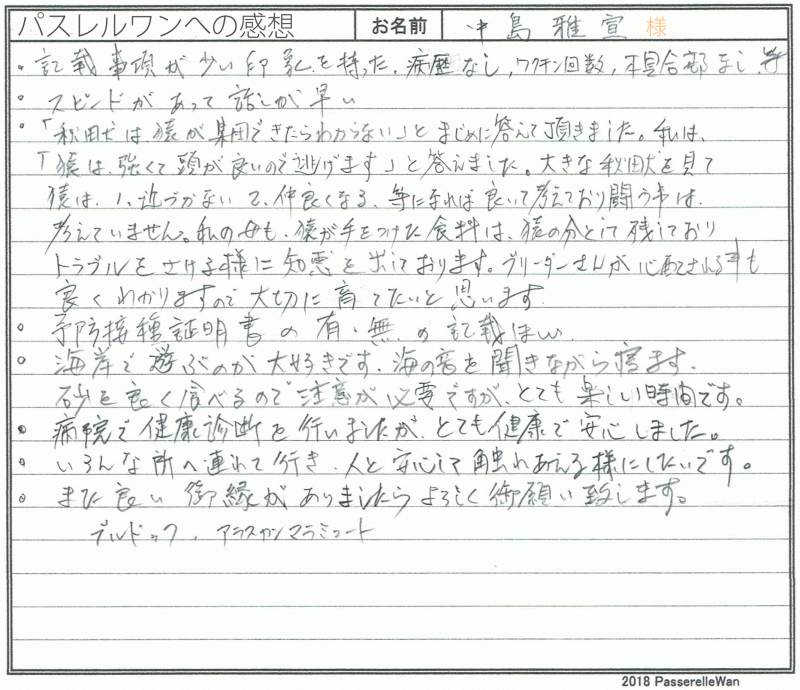 パスレルワンへの感想 お名前 中島雅宣 様
・記載事項が少い印象を持った。病歴なし,ワクチン回数,不具合部なし,等
・スピードがあって話しが早い
・「秋田犬は、猿が集団できたらわからない」とまじめに答えて頂きました。私は、
「猿は、強くて頭が良いので逃げます」と答えました。大きな秋田犬を見て
猿は、1、近づかない 2、仲良くなる、等になれば良いて考えており闘う事は、
考えていません。私の母も、猿が手をつけた食料は、猿の分として残しており
トラブルをさける様に知恵を出しております。ブリーダーさんが心配される事も
良くわかりますので大切に育てたいと思います。
・予防接種証明書の有・無の記載ほしい
・海岸で遊ぶのが大好きです。海の音を聞きながら寝ます。
砂を良く食べるので注意が必要ですが、とても楽しい時間です。
・病院で健康診断を行いましたが、とても健康で安心しました。
・いろんな所へ連れて行き、人と安心して触れあえる様にしたいです。
・また良い御縁がありましたらよろしく御願い致します。
ブルドック、アラスカンマラミュート
2018 PasserelleWan